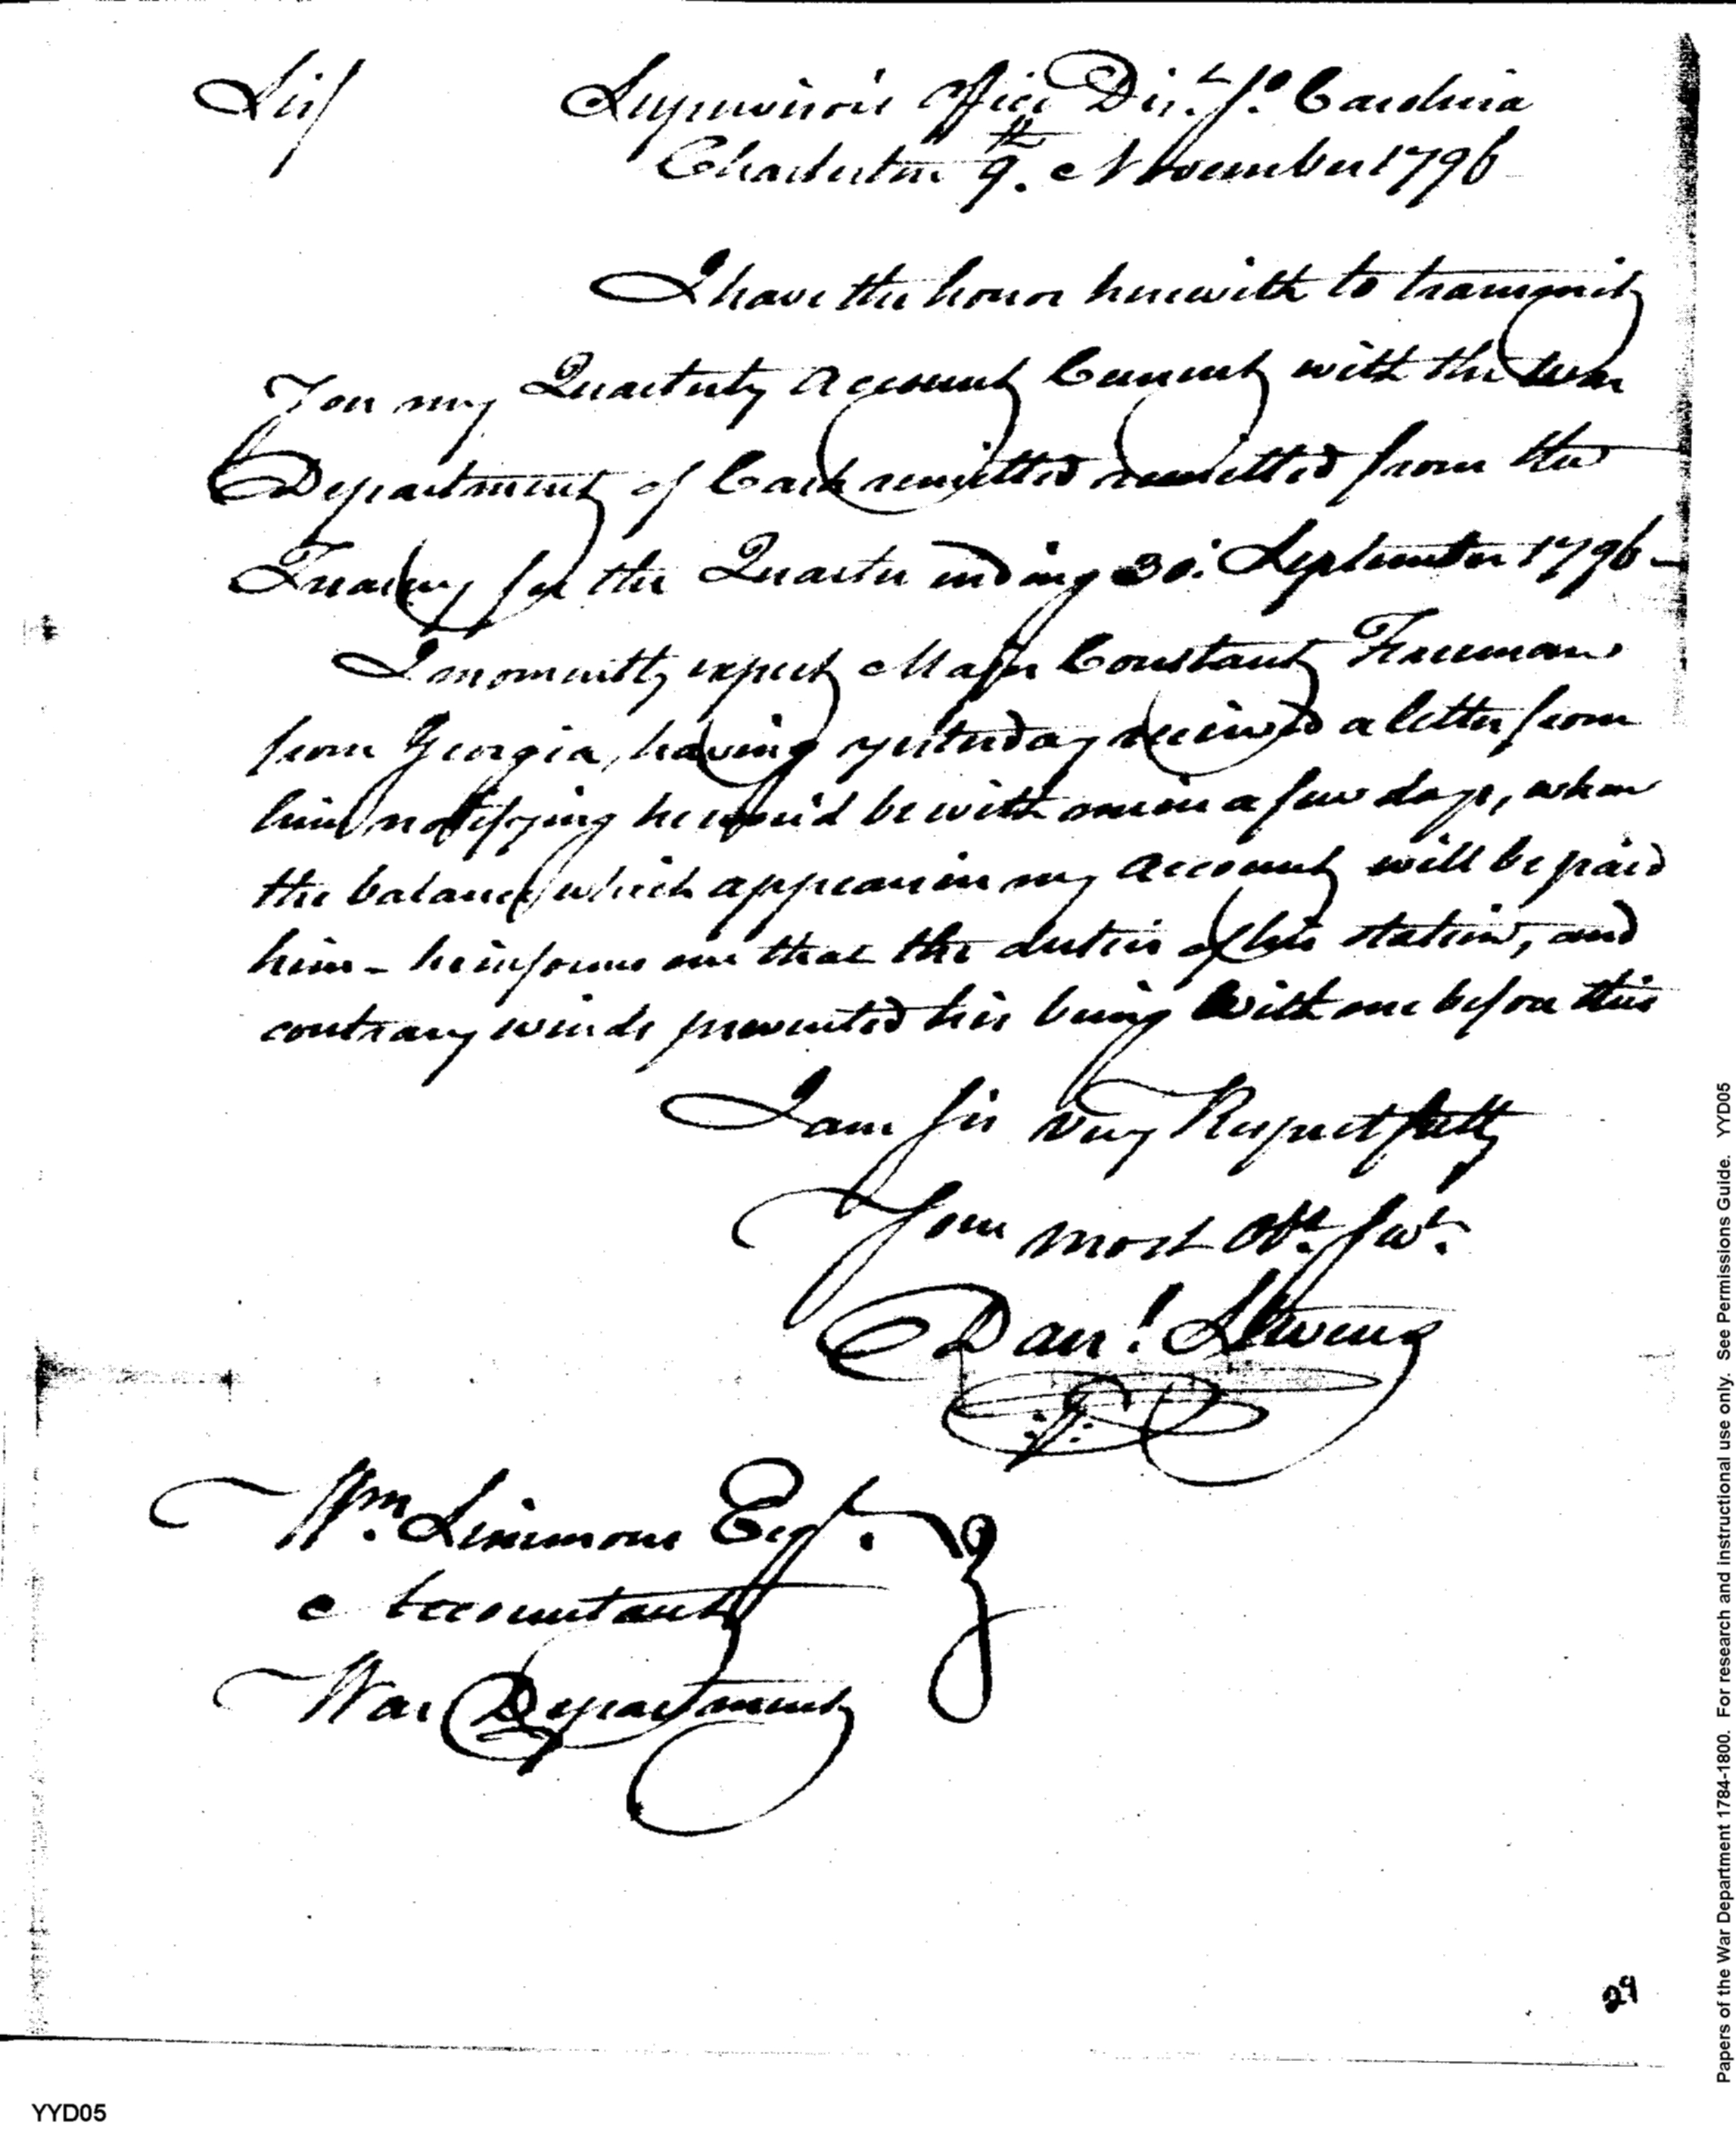 Sir/
Supervisor's Office Dist. So. Carolina
Charleston 9th. November 1796
I have the honor herewith to transmit
You my Quarterly Account Current with the War
Department of Cash remitted remitted from the
Treasury for the Quarter ending 30. September 1796 -
I momently expect Major Constant Freeman
from Georgia, having yesterday received a letter from
him notifying he wou'd be with me in a few days, when
the balance which appears in my account will be paid
him - he informs me that the duties of his station, and
contrary winds prevented his being with me before this
I am Sir very Respectfully
Your most Obt. Svt.
Danl. Stevens
Wm. Simmons Esqr.
Accountant
War Department
29
YYD05
Papers of the War Department 1784-1800. For research and instructional use only. See Permissions Guide. YYD05